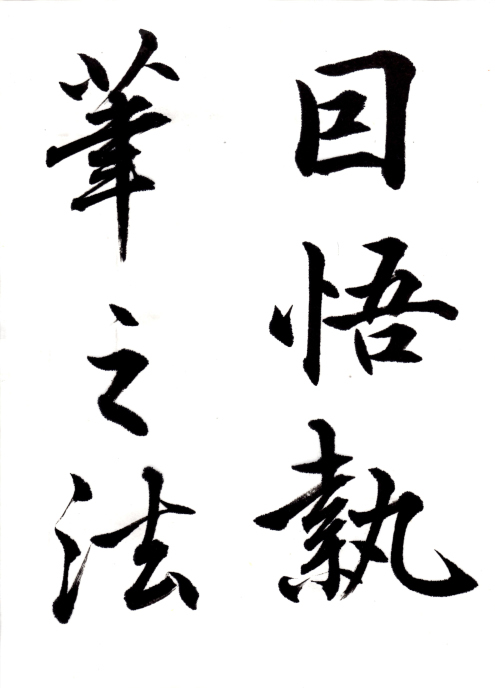 回悟執
筆之法